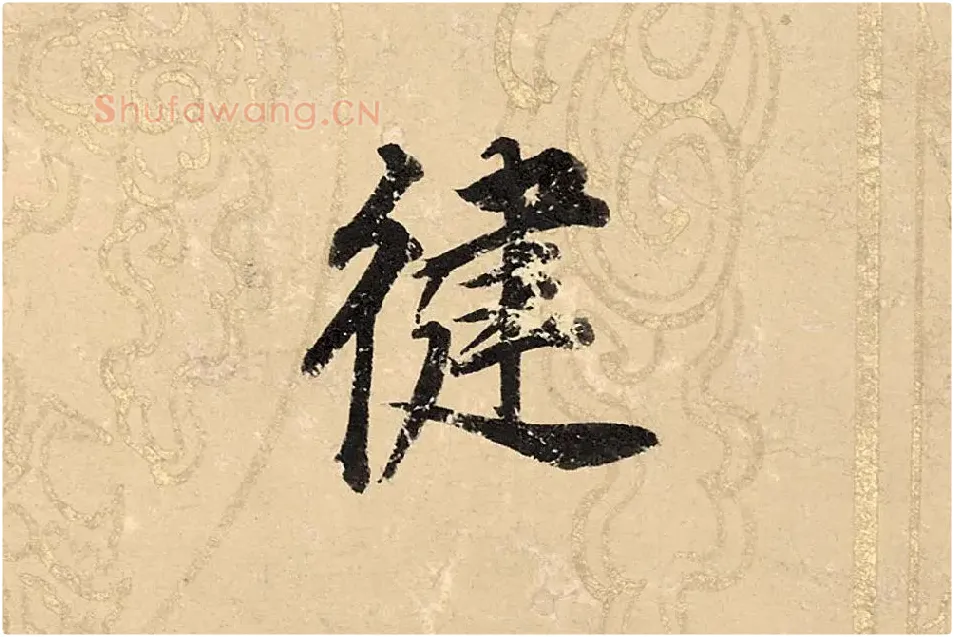 Shufawang.CN
徤